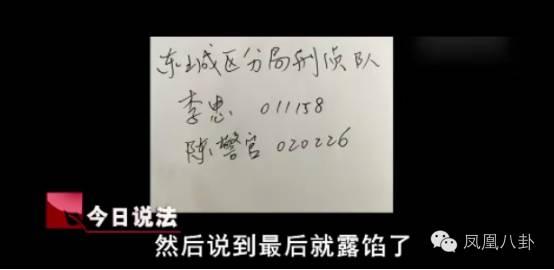 东城区分局刑侦队
李忠 011158
陈警官 020226
今日说法
然后说到最后就露馅了
凤凰八卦